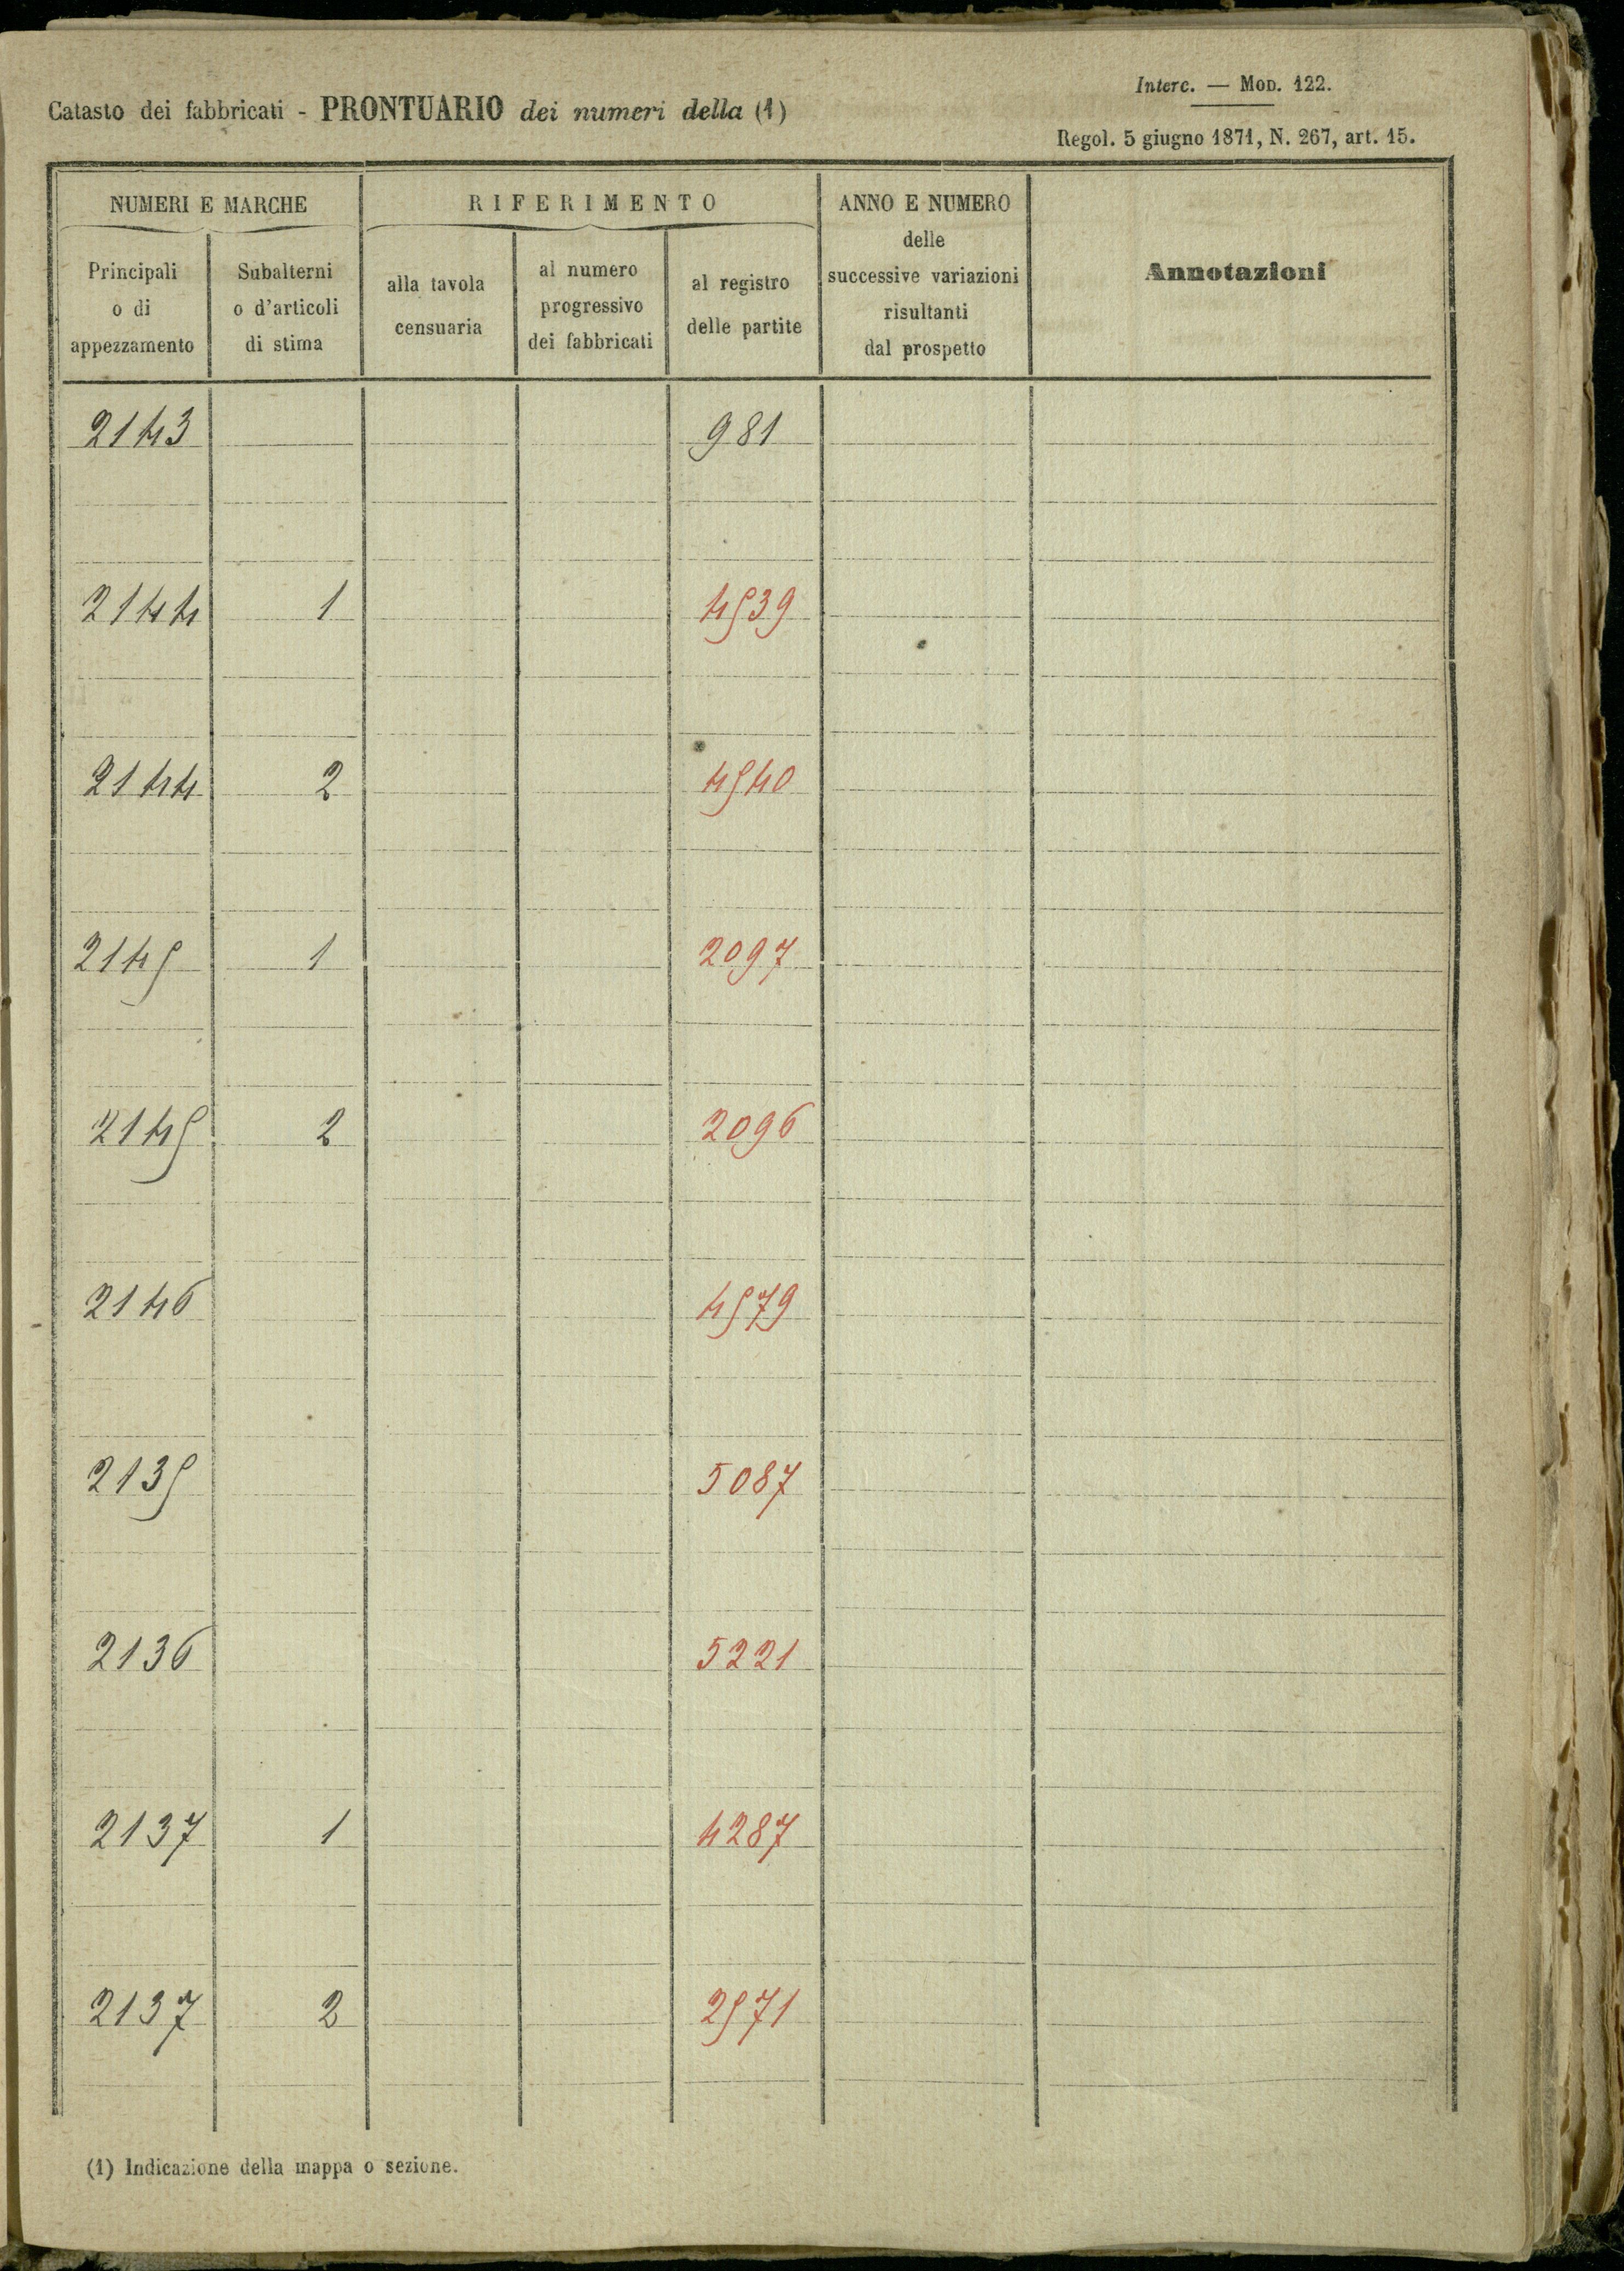 Interc. — Mod. 122.
Catasto dei fabbricati - PRONTUARIO dei numeri della (1)
Regol. 5 giugno 1871, N. 267, art. 15.
NUMERI E MARCHE
RIFERIMENTO
ANNO E NUMERO
delle
successive variazioni
risultanti
dal prospetto
Annotazioni
Principali
o di
appezzamento
Subalterni
o d'articoli
di stima
alla tavola
censuaria
al numero
progressivo
dei fabbricati
al registro
delle partite
2143 981
2144 1 4539
2144 2 4540
2145 1 2097
2145 2 2096
2146 4579
2135 5087
2136 5221
2137 1 4287
2137 2 2571
(1) Indicazione della mappa o sezione.